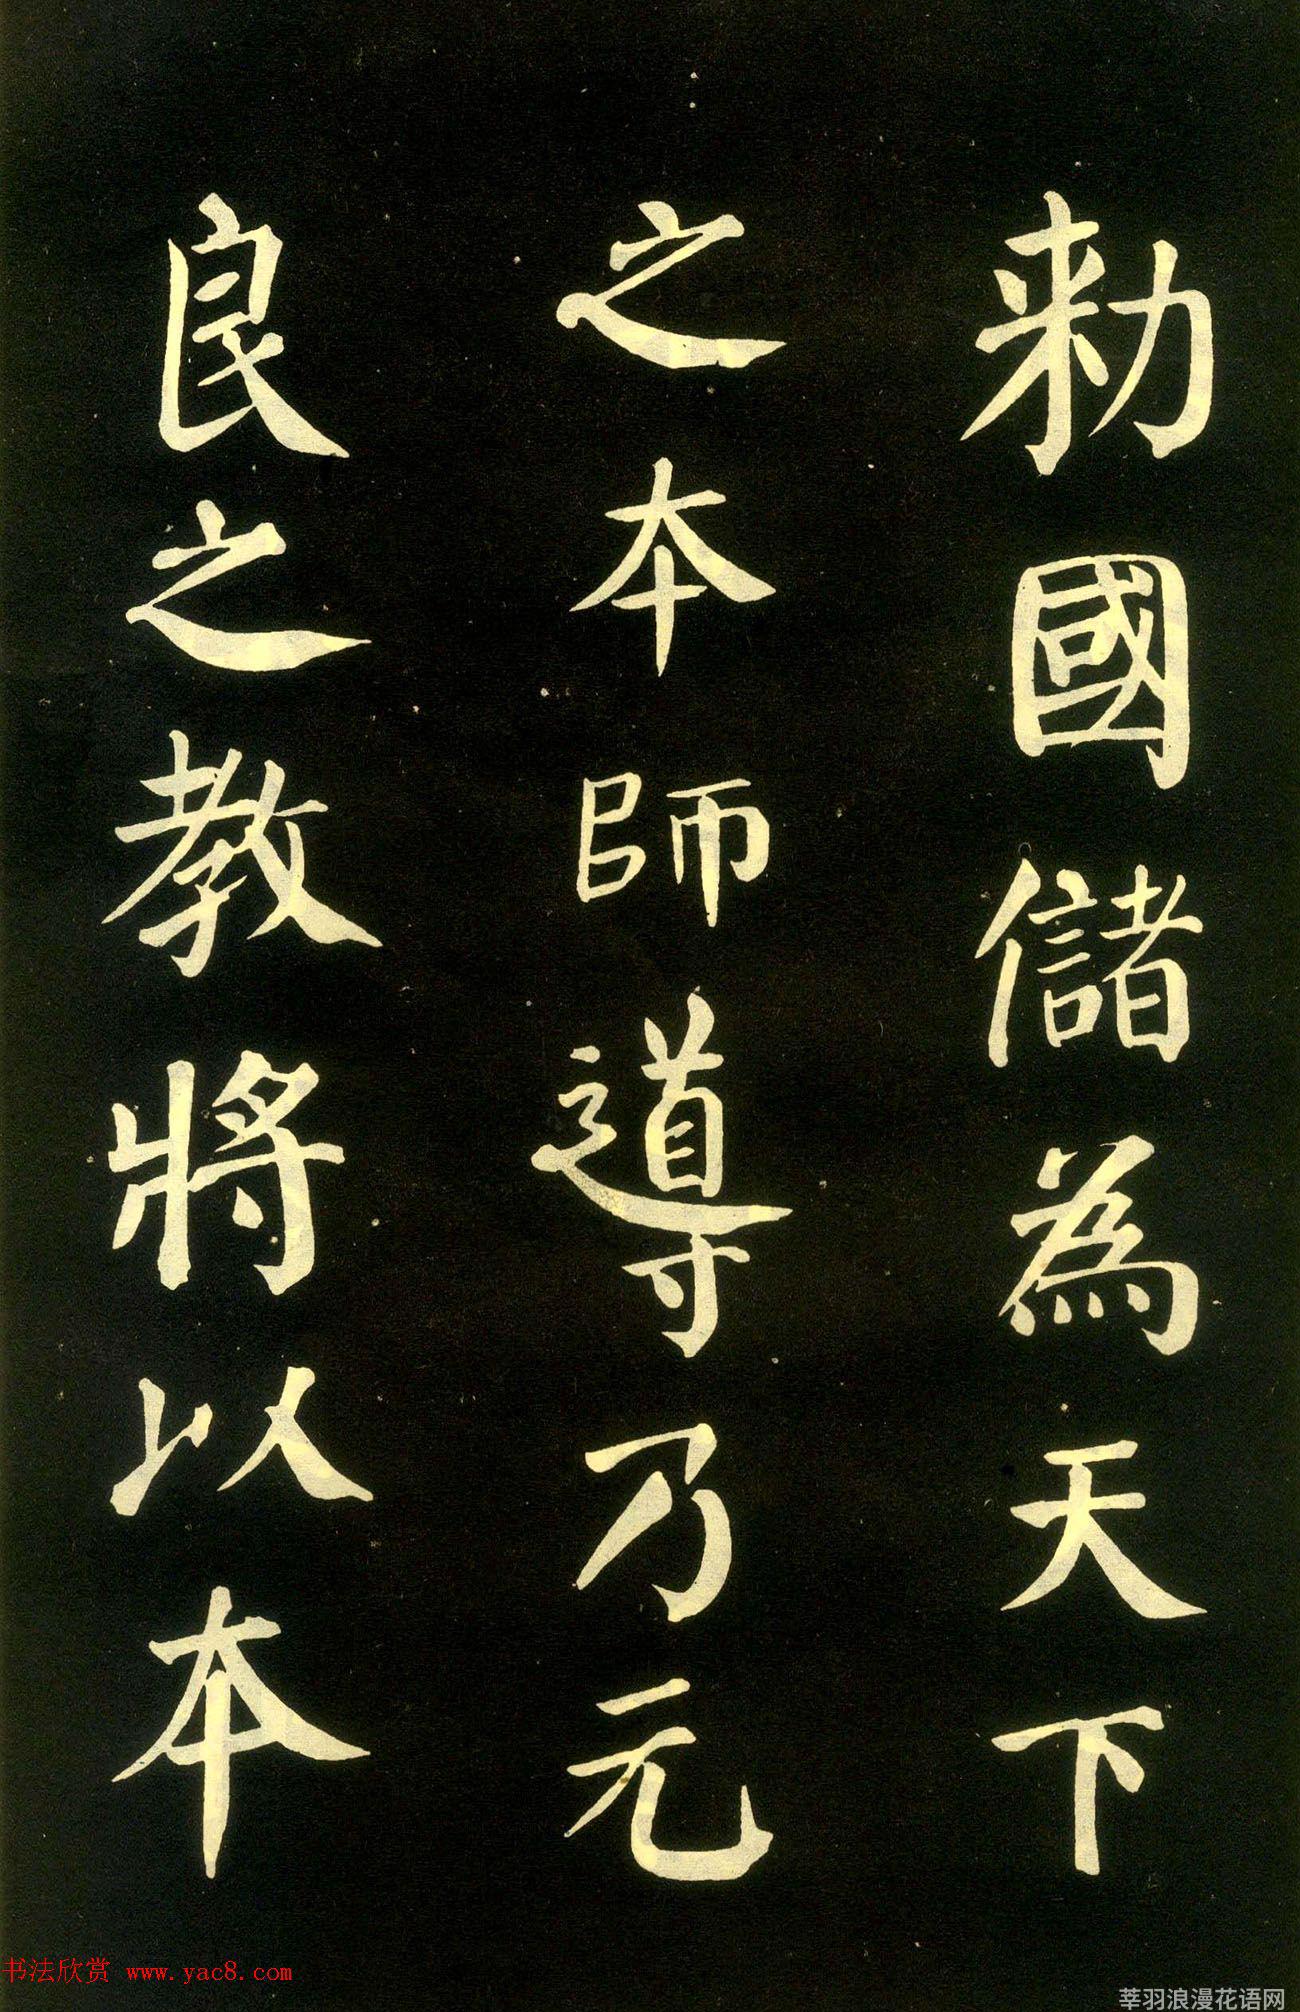 勑國儲為天下
之本師導乃元
良之教將以本
书法欣赏 www.yac8.com
莘羽浪漫花语网